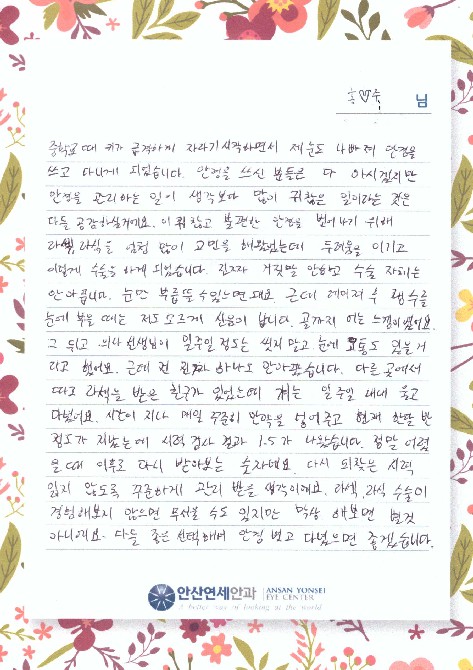 홍♡수 님
중학교때 키가 급격하게 자라기 시작하면서 제 눈도 나빠져 안경을
쓰고 다니게 되었습니다. 안경을 쓰신 분들은 다 아시겠지만
안경을 관리하는 일이 생각보다 많이 귀찮은 일이라는 것은
다들 공감하실거예요. 이 귀찮고 불편한 안경을 벗어나기 위해
라섹, 라식을 엄청 많이 고민을 해왔었는데 두려움을 이기고
이렇게 수술을 하게 되었습니다. 진짜 거짓말 안하고 수술 자체는
안아픕니다. 눈만 부릅뜰 수 있으면 돼요. 근데 레이저 후 생수를
눈에 부을 때는 저도 모르게 신음이 납니다. 골까지 어는 느낌이었어요.
그 뒤고 의사 선생님이 일주일 정도는 씻지 말고 눈에 고통도 있을거
라고 했어요. 근데 전 진짜 하나도 안아팠습니다. 다른 곳에서
따로 라섹을 받은 친구가 있었는데 걔는 일주일 내내 울고
다녔어요. 시간이 지나 매일 꾸준히 안약을 넣어주고 현재 한달 반
정도가 지났는데 시력 검사 결과 1.5가 나왔습니다. 정말 어렸
을 때 이후로 다시 받아보는 숫자네요. 다시 되찾은 시력
잃지 않도록 꾸준하게 관리 받을 생각이에요. 라섹, 라식 수술이
경험해보지 않으면 무서울 수도 있지만 막상 해보면 별것
아니에요. 다들 좋은 선택해서 안경 벗고 다녔으면 좋겠습니다.
안산연세안과 ANSAN YONSEI
EYE CENTER
A better way of looking at the world